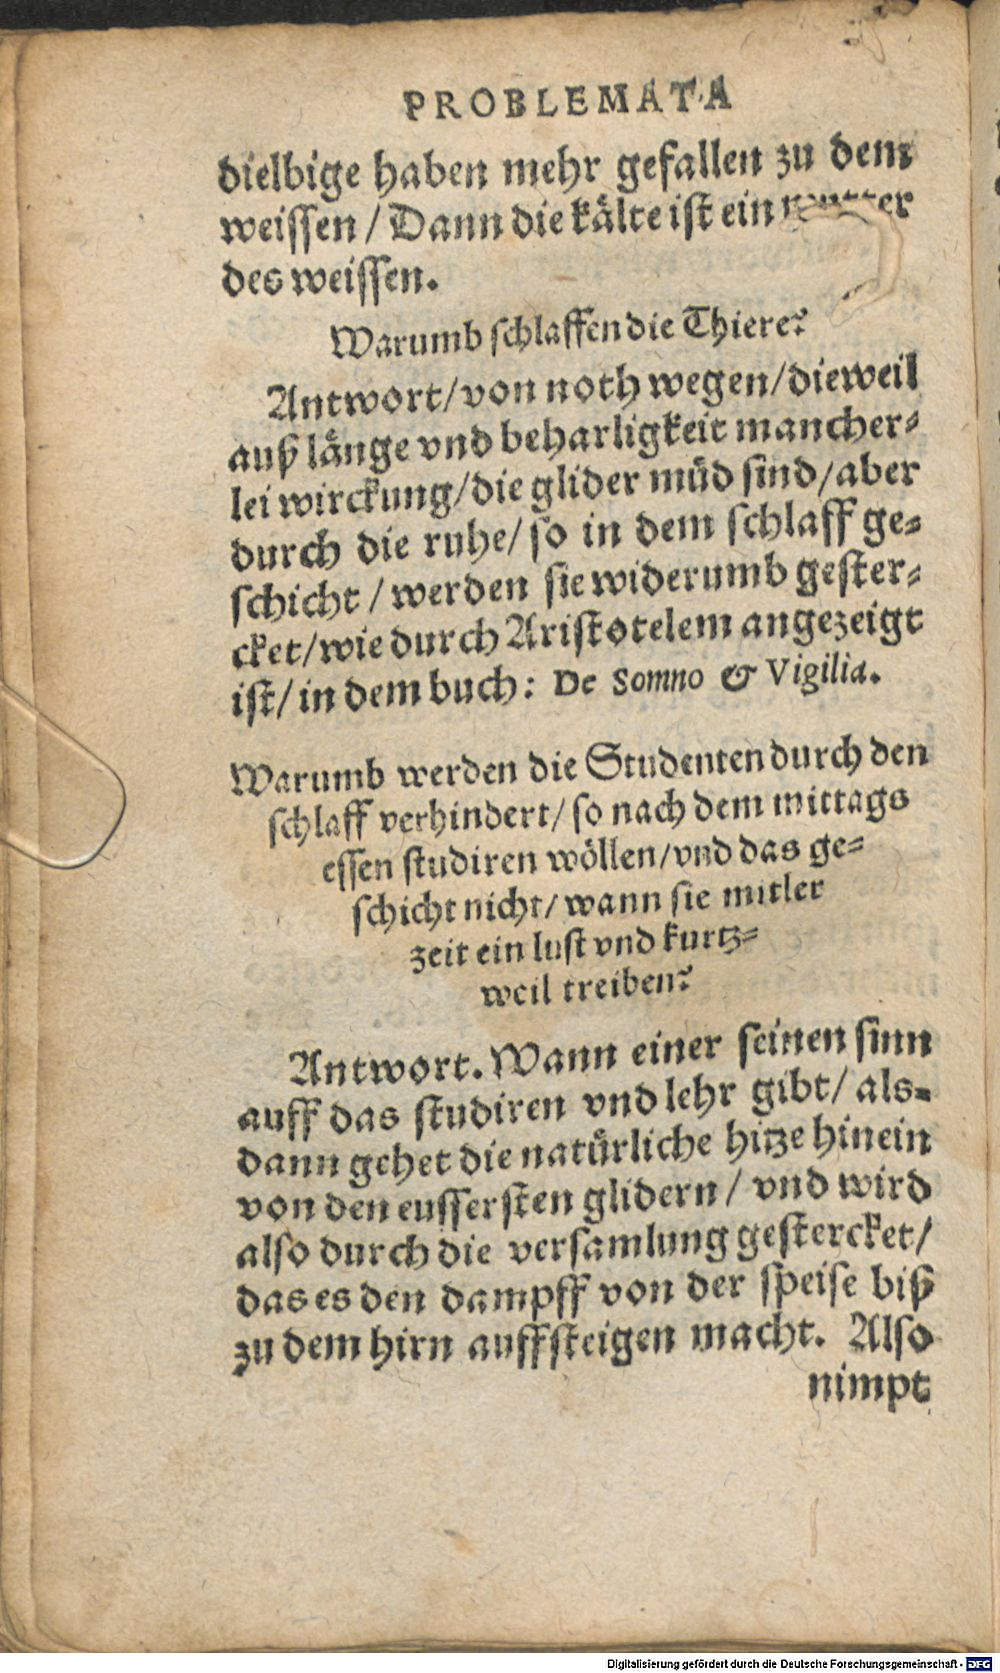 PROBLEMATA
dielbige haben mehr gefallen zu dem
weissen / Dann die kälte ist ein
des weissen.
Warumb schlaffen die Thiere?
Antwort/von noth wegen/dieweil
auß länge vnd beharligkeit mancher⸗
lei wirckung/die glider müd sind/aber
durch die ruhe/so in dem schlaff ge⸗
schicht / werden sie widerumb gester⸗
cket/wie durch Aristotelem angezeigt
ist/in dem buch: De Somno & Vigilia.
Warumb werden die Studenten durch den
schlaff verhindert/so nach dem mittags
essen studiren wöllen/vnd das ge⸗
schicht nicht/wann sie mitler
zeit ein lust vnd kurtz⸗
weil treiben?
Antwort. Wann einer seinen sinn
auff das studiren vnd lehr gibt/ als⸗
dann gehet die natürliche hitze hinein
von den eussersten glidern/ vnd wird
also durch die versamlung gestercket/
das es den dampff von der speise biß
zu dem hirn auffsteigen macht. Also
nimpt
Digitalisierung gefördert durch die Deutsche Forschungsgemeinschaft - DFG